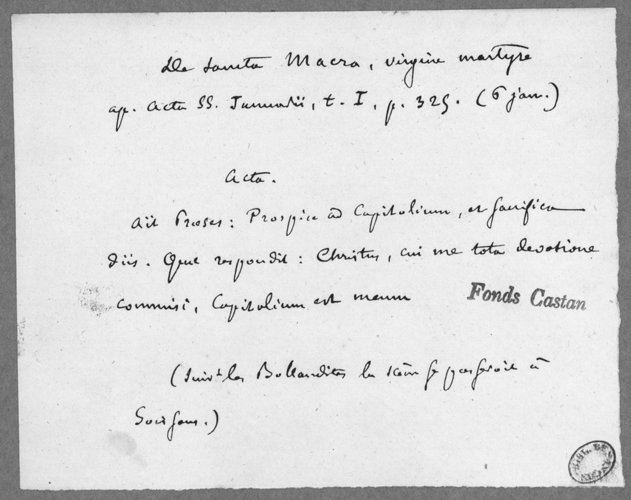 De sancta Macra, virgine martyre
ap. Acta SS. Januarii, t. I, p. 325. (6 jan.)
Acta.
Ait Praeses : Prospice ad Capitolium, et sacrifica
diis. Quae respondit : Christus, cui me tota devotione
commisi, Capitolium est meum
Fonds Castan
(Suivt les Bollandistes la scène se passerait à
Soissons.)